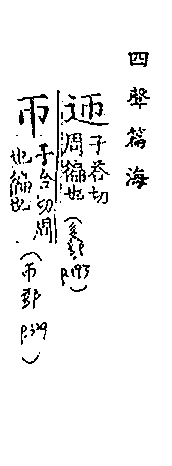 四聲篇海
迊子荅切
周徧也(辵部
p.193)
帀子合切周
也徧也(帀部